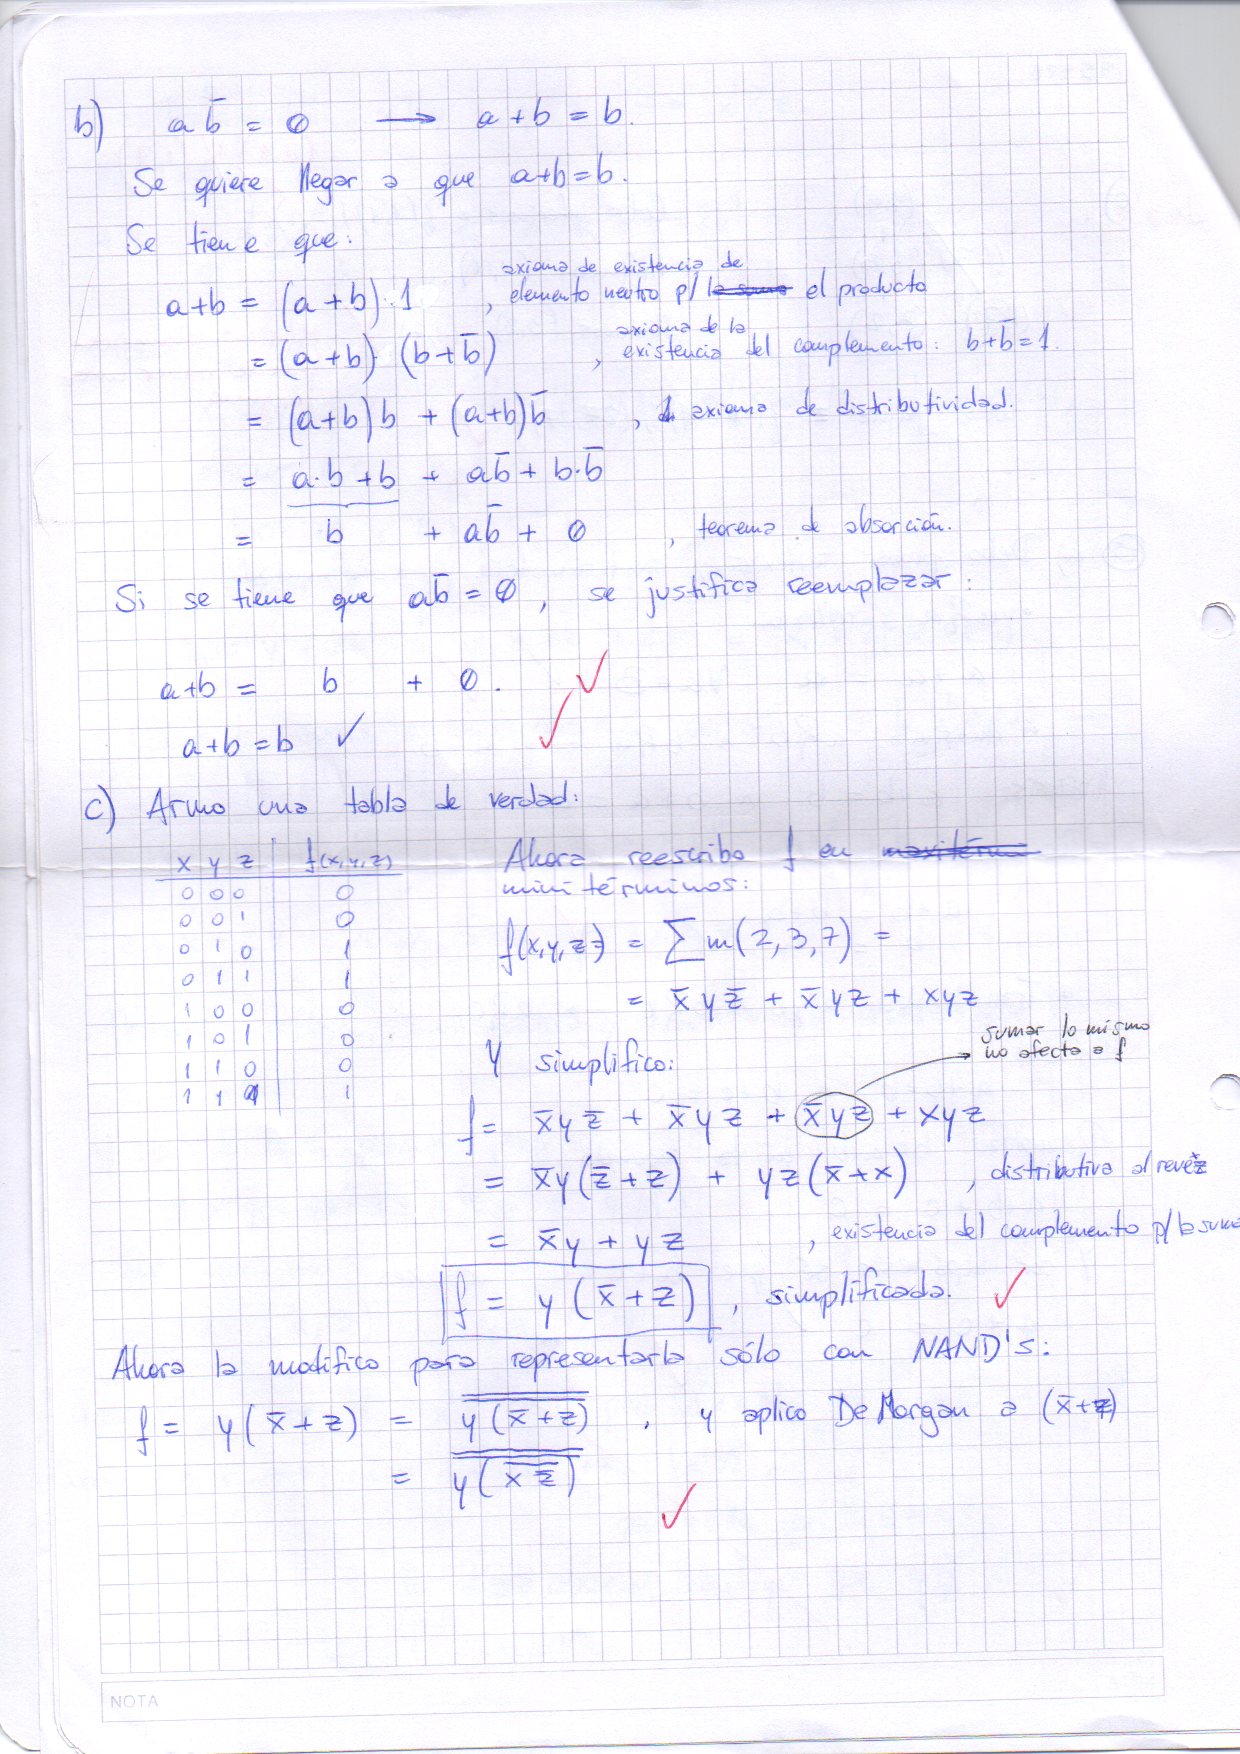 b) a b̄ = 0 → a + b = b.
Se quiere llegar a que a+b=b.
Se tiene que:
a+b = (a+b)·1 , axioma de existencia de
elemento neutro p/ la suma el producto
= (a+b)·(b+b̄) , axioma de la
existencia del complemento: b+b̄=1.
= (a+b)b + (a+b)b̄ , axioma de distributividad.
= a·b + b + ab̄ + b·b̄
= b + ab̄ + 0 , teorema de absorción.
Si se tiene que ab̄ = 0, se justifica reemplazar:
a+b = b + 0.
a+b = b ✓
c) Armo una tabla de verdad:
x y z f(x,y,z)
0 0 0 0
0 0 1 0
0 1 0 1
0 1 1 1
1 0 0 0
1 0 1 0
1 1 0 0
1 1 1 1
Ahora reescribo f en
minitérminos:
f(x,y,z) = ∑m(2,3,7) =
= x̄ y z̄ + x̄ y z + x y z
sumar lo mismo
no afecta a f
Y simplifico:
f = x̄ y z̄ + x̄ y z + x̄ y z + x y z
= x̄y(z̄+z) + yz(x̄+x) , distributiva al revéz
= x̄y + yz , existencia del complemento p/ la suma
f = y(x̄+z) , simplificada.
Ahora la modifico para representarla sólo con NAND's:
f = y(x̄+z) = y̿(̿x̿̄+̿z̿)̿ , y aplico De Morgan a (x̄+z)
= y̿(̿x̿̅ ̿z̿̄)̿
NOTA